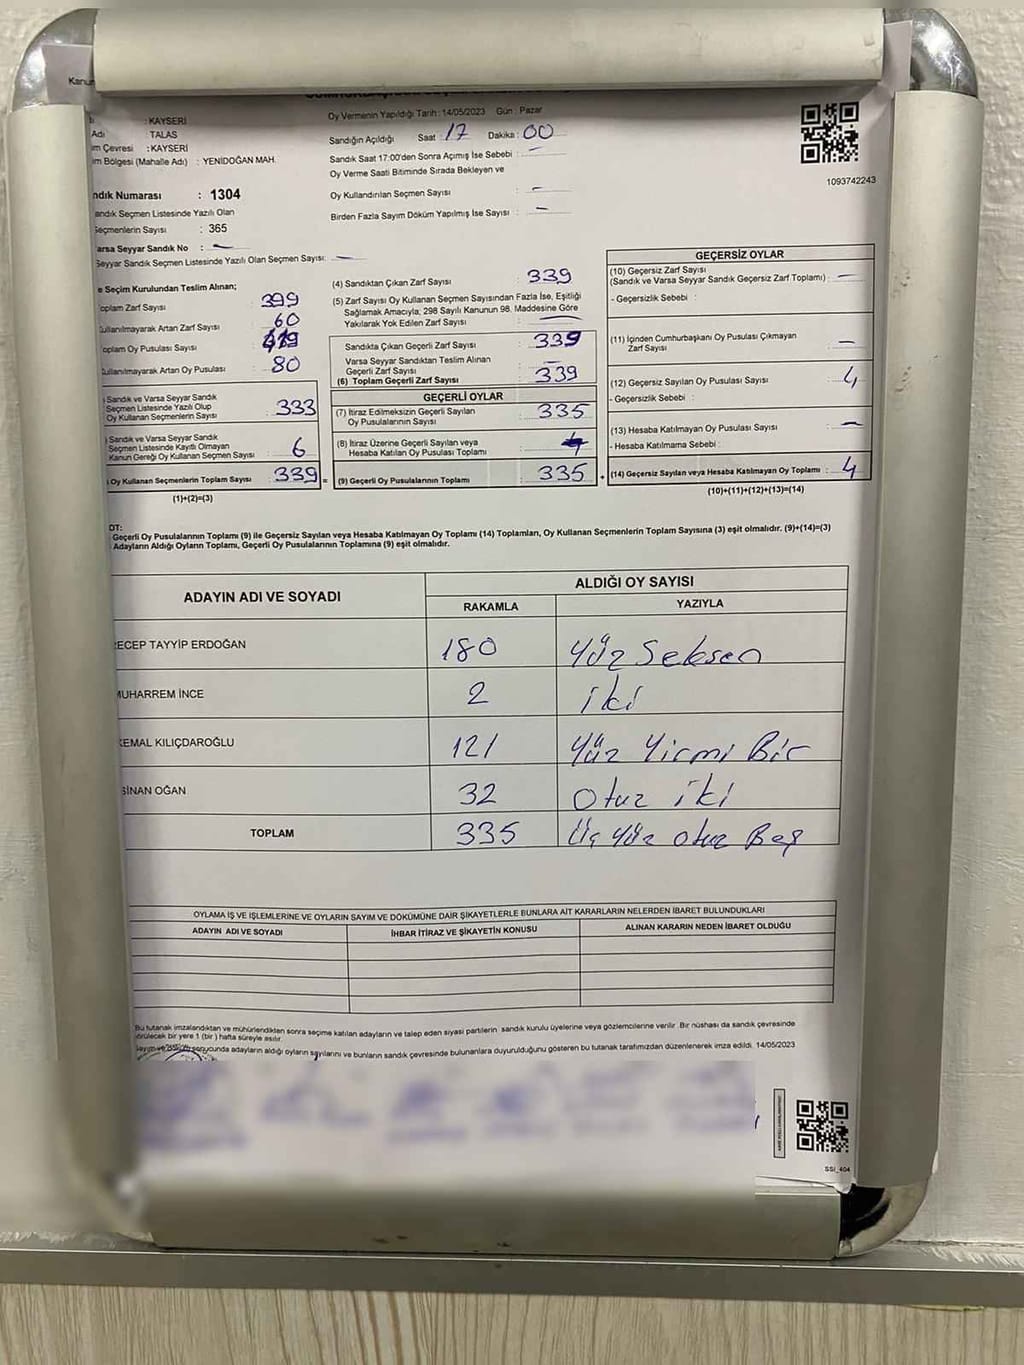 Kanun
Oy Vermenin Yapıldığı Tarih : 14/05/2023 Gün : Pazar
: KAYSERİ
Adı : TALAS
im Çevresi : KAYSERİ
im Bölgesi (Mahalle Adı) : YENİDOĞAN MAH.
Sandığın Açıldığı Saat : 17 Dakika : 00
Sandık Saat 17:00'den Sonra Açılmış İse Sebebi : -
Oy Verme Saati Bitiminde Sırada Bekleyen ve
Oy Kullandırılan Seçmen Sayısı : -
Birden Fazla Sayım Döküm Yapılmış İse Sayısı : -
1093742243
ndık Numarası : 1304
andık Seçmen Listesinde Yazılı Olan
Seçmenlerin Sayısı : 365
arsa Seyyar Sandık No : -
Seyyar Sandık Seçmen Listesinde Yazılı Olan Seçmen Sayısı: -
e Seçim Kurulundan Teslim Alınan;
oplam Zarf Sayısı : 399
ullanılmayarak Artan Zarf Sayısı : 60
oplam Oy Pusulası Sayısı : 419
ullanılmayarak Artan Oy Pusulası : 80
) Sandık ve Varsa Seyyar Sandık
Seçmen Listesinde Yazılı Olup
Oy Kullanan Seçmenlerin Sayısı : 333
) Sandık ve Varsa Seyyar Sandık
Seçmen Listesinde Kayıtlı Olmayan
Kanun Gereği Oy Kullanan Seçmen Sayısı : 6
) Oy Kullanan Seçmenlerin Toplam Sayısı : 339 =
(1)+(2)=(3)
(4) Sandıktan Çıkan Zarf Sayısı : 339
(5) Zarf Sayısı Oy Kullanan Seçmen Sayısından Fazla İse, Eşitliği
Sağlamak Amacıyla; 298 Sayılı Kanunun 98. Maddesine Göre
Yakılarak Yok Edilen Zarf Sayısı : -
Sandıkta Çıkan Geçerli Zarf Sayısı : 339
Varsa Seyyar Sandıktan Teslim Alınan
Geçerli Zarf Sayısı : -
(6) Toplam Geçerli Zarf Sayısı : 339
GEÇERLİ OYLAR
(7) İtiraz Edilmeksizin Geçerli Sayılan
Oy Pusulasının Sayısı : 335
(8) İtiraz Üzerine Geçerli Sayılan veya
Hesaba Katılan Oy Pusulası Toplamı :
(9) Geçerli Oy Pusulalarının Toplamı : 335 +
GEÇERSİZ OYLAR
(10) Geçersiz Zarf Sayısı
(Sandık ve Varsa Seyyar Sandık Geçersiz Zarf Toplamı) : -
- Geçersizlik Sebebi :
(11) İçinden Cumhurbaşkanı Oy Pusulası Çıkmayan
Zarf Sayısı : -
(12) Geçersiz Sayılan Oy Pusulası Sayısı : 4
- Geçersizlik Sebebi :
(13) Hesaba Katılmayan Oy Pusulası Sayısı : -
- Hesaba Katılmama Sebebi :
(14) Geçersiz Sayılan veya Hesaba Katılmayan Oy Toplamı : 4
(10)+(11)+(12)+(13)=(14)
OT:
Geçerli Oy Pusulalarının Toplamı (9) ile Geçersiz Sayılan veya Hesaba Katılmayan Oy Toplamı (14) Toplamları, Oy Kullanan Seçmenlerin Toplam Sayısına (3) eşit olmalıdır. (9)+(14)=(3)
Adayların Aldığı Oyların Toplamı, Geçerli Oy Pusulalarının Toplamına (9) eşit olmalıdır.
ADAYIN ADI VE SOYADI
ALDIĞI OY SAYISI
RAKAMLA YAZIYLA
RECEP TAYYİP ERDOĞAN 180 Yüz Seksen
MUHARREM İNCE 2 iki
KEMAL KILIÇDAROĞLU 121 Yüz Yirmi Bir
SİNAN OĞAN 32 Otuz iki
TOPLAM 335 Üç Yüz otuz Beş
OYLAMA İŞ VE İŞLEMLERİNE VE OYLARIN SAYIM VE DÖKÜMÜNE DAİR ŞİKAYETLERLE BUNLARA AİT KARARLARIN NELERDEN İBARET BULUNDUKLARI
ADAYIN ADI VE SOYADI İHBAR İTİRAZ VE ŞİKAYETİN KONUSU ALINAN KARARIN NEDEN İBARET OLDUĞU
Bu tutanak imzalandıktan ve mühürlendikten sonra seçime katılan adayların ve talep eden siyasi partilerin sandık kurulu üyelerine veya gözlemcilerine verilir. Bir nüshası da sandık çevresinde
görülecek bir yere 1 (bir) hafta süreyle asılır.
sonucunda adayların aldığı oyların sayılarını ve bunların sandık çevresinde bulunanlara duyurulduğunu gösteren bu tutanak tarafımızdan düzenlenerek imza edildi. 14/05/2023
SSI_404